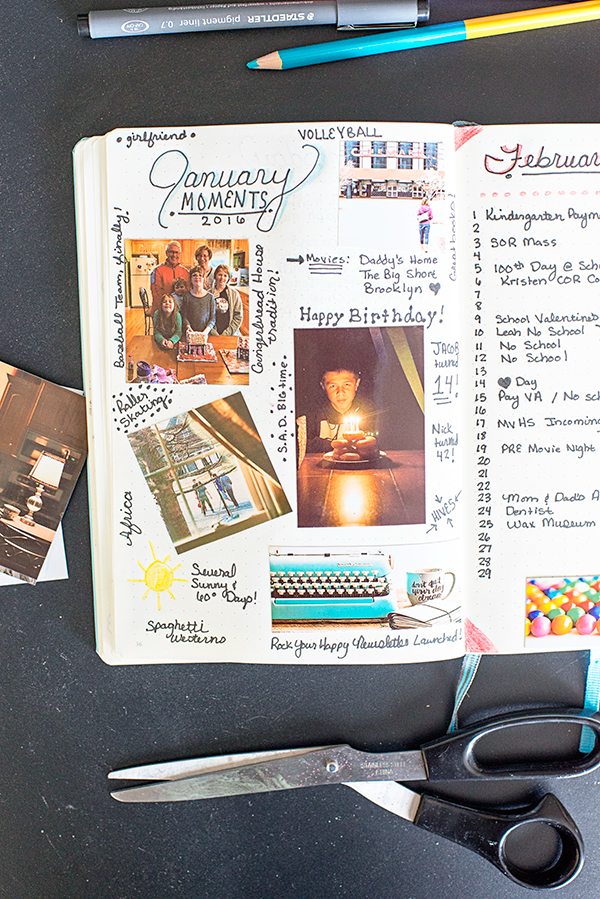 STAEDTLER pigment liner 0.7
girlfriend
VOLLEYBALL
January
MOMENTS
2016
Baseball Team, finally!
Gingerbread House
tradition!
→ Movies: Daddy's Home
The Big Short
Brooklyn ♥
Happy Birthday!
JACOB
turned
14!
Nick
turned
42!
→HIVES←
Roller
Skating
S.A.D. Big time
Africa
Several
Sunny &
60° Days!
Spaghetti
Westerns
don't let
your day
dream
Rock Your Happy Newsletter Launched!
Februar
1 Kindergarten Paym
2
3 SOR Mass
4
5 100th Day @ Sch
6 Kristen COR Co
7
8
9 School Valentines
10 Leah No School
11 No School
12 No School
13
14 ♥ Day
15 Pay VA / No sch
16
17 MVHS Incoming
18
19 PRE Movie Night
20
21
22
23 Mom & Dad's A
24 Dentist
25 Wax Museum
26
27
28
29
STAINLESS STEEL